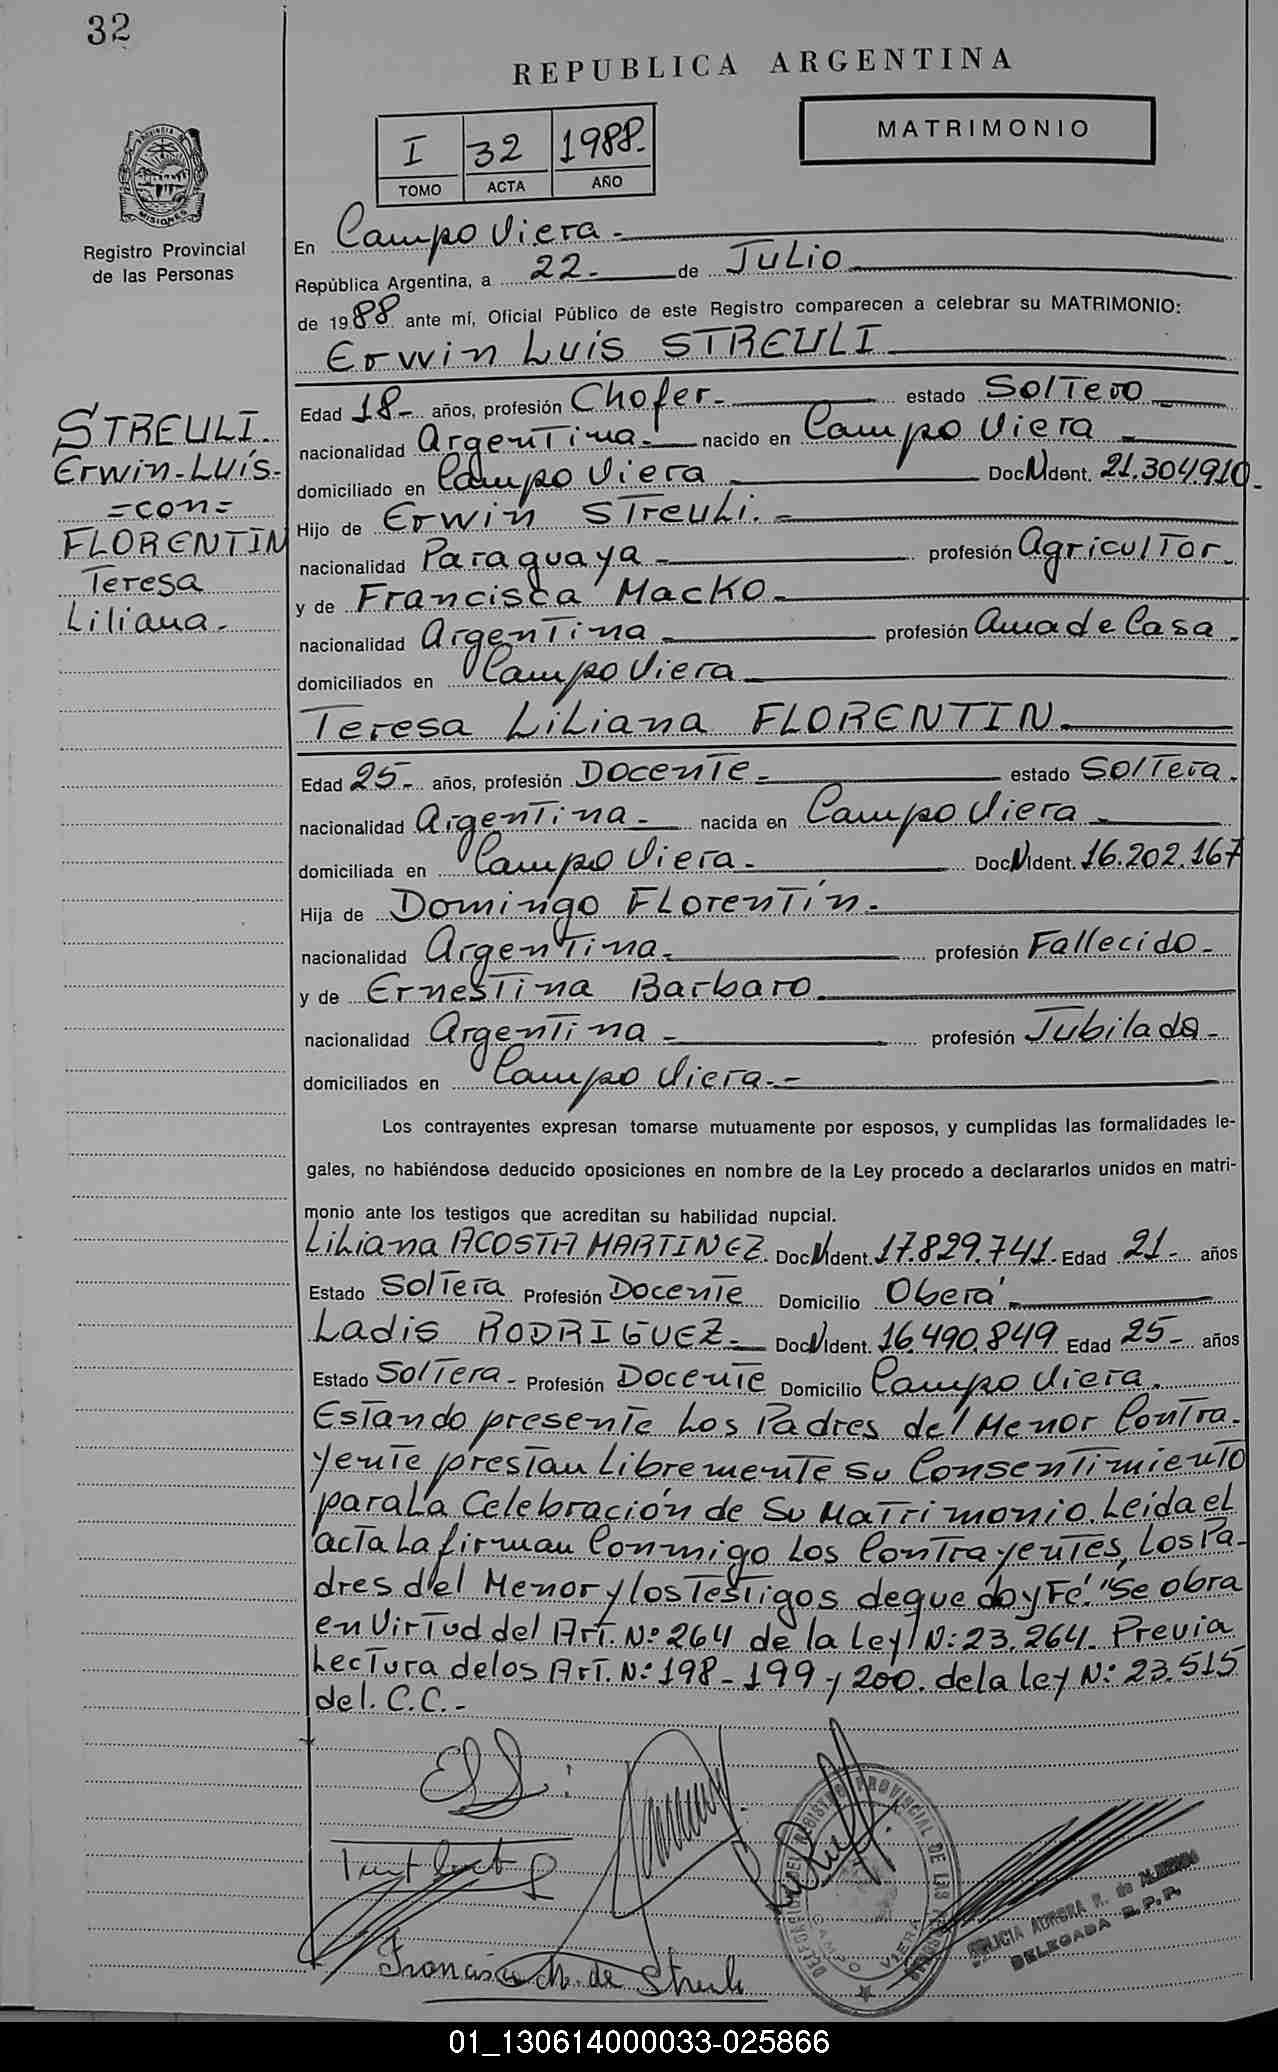 32
REPUBLICA ARGENTINA
MATRIMONIO
I 32 1988.-
TOMO ACTA AÑO
MISIONES
Registro Provincial
de las Personas
En Campo Viera.-
República Argentina, a 22.- de Julio
de 1988 ante mí, Oficial Público de este Registro comparecen a celebrar su MATRIMONIO:
Erwin Luis STREULI
STREULI.
Erwin-Luís.-
=con=
FLORENTIN
Teresa
Liliana.-
Edad 18- años, profesión Chofer.- estado Soltero
nacionalidad Argentina.- nacido en Campo Viera
domiciliado en Campo Viera Doc.N.Ident. 21.304.910.-
Hijo de Erwin Streuli.-
nacionalidad Paraguaya- profesión Agricultor-
y de Francisca Macko-
nacionalidad Argentina profesión Ama de Casa.
domiciliados en Campo Viera
Teresa Liliana FLORENTIN.
Edad 25- años, profesión Docente- estado Soltera.
nacionalidad Argentina- nacida en Campo Viera-
domiciliada en Campo Viera.- Doc.N.Ident. 16.202.167
Hija de Domingo Florentín.-
nacionalidad Argentina. profesión Fallecido-
y de Ernestina Barbaro
nacionalidad Argentina- profesión Jubilada-
domiciliados en Campo Viera.-
Los contrayentes expresan tomarse mutuamente por esposos, y cumplidas las formalidades le-
gales, no habiéndose deducido oposiciones en nombre de la Ley procedo a declararlos unidos en matri-
monio ante los testigos que acreditan su habilidad nupcial.
Liliana ACOSTA MARTINEZ. Doc.N.Ident. 17.829.741- Edad 21- años
Estado Soltera Profesión Docente Domicilio Oberá.
Ladis RODRIGUEZ- Doc.N.Ident. 16.490.849 Edad 25- años
Estado Soltera- Profesión Docente Domicilio Campo Viera.
Estando presente los Padres del Menor Contra-
yente prestan libremente su Consentimiento
para la Celebración de Su Matrimonio. Leida el
acta la firman Conmigo los Contrayentes, los Pa-
dres del Menor y los Testigos de que doy Fé. "Se obra
en Virtud del Art. Nº 264 de la Ley N: 23.264. Previa
Lectura de los Art. N: 198-199 y 200. de la ley N: 23.515
del. C.C.-
Francisca M. de Streuli
REGISTRO PROVINCIAL DE LAS PERSONAS
CAMPO VIERA
AURORA R. de
DELEGADA R.P.P.
01_130614000033-025866